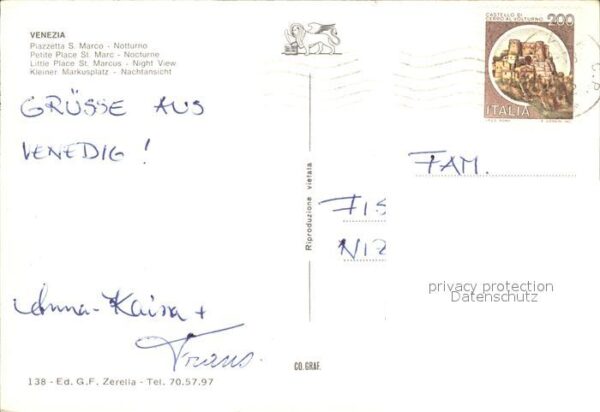 VENEZIA
Piazzetta S. Marco - Notturno
Petite Place St. Marc - Nocturne
Little Place St. Marcus - Night View
Kleiner Markusplatz - Nachtansicht
CASTELLO DI
CERRO AL VOLTURNO
200
ITALIA
GRÜSSE AUS
VENEDIG !
Anna-Kaisa +
Frans.
Riproduzione vietata
FAM.
FIS
NIZ
privacy protection
Datenschutz
CO. GRAF.
138 - Ed. G.F. Zerella - Tel. 70.57.97